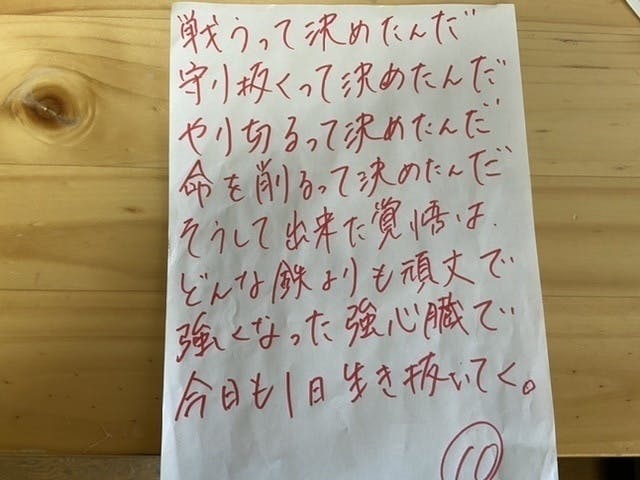 戦うって決めたんだ
守り抜くって決めたんだ
やり切るって決めたんだ
命を削るって決めたんだ
そうして出来た覚悟は、
どんな鉄よりも頑丈で
強くなった強心臓で
今日も1日生き抜いてく。
10